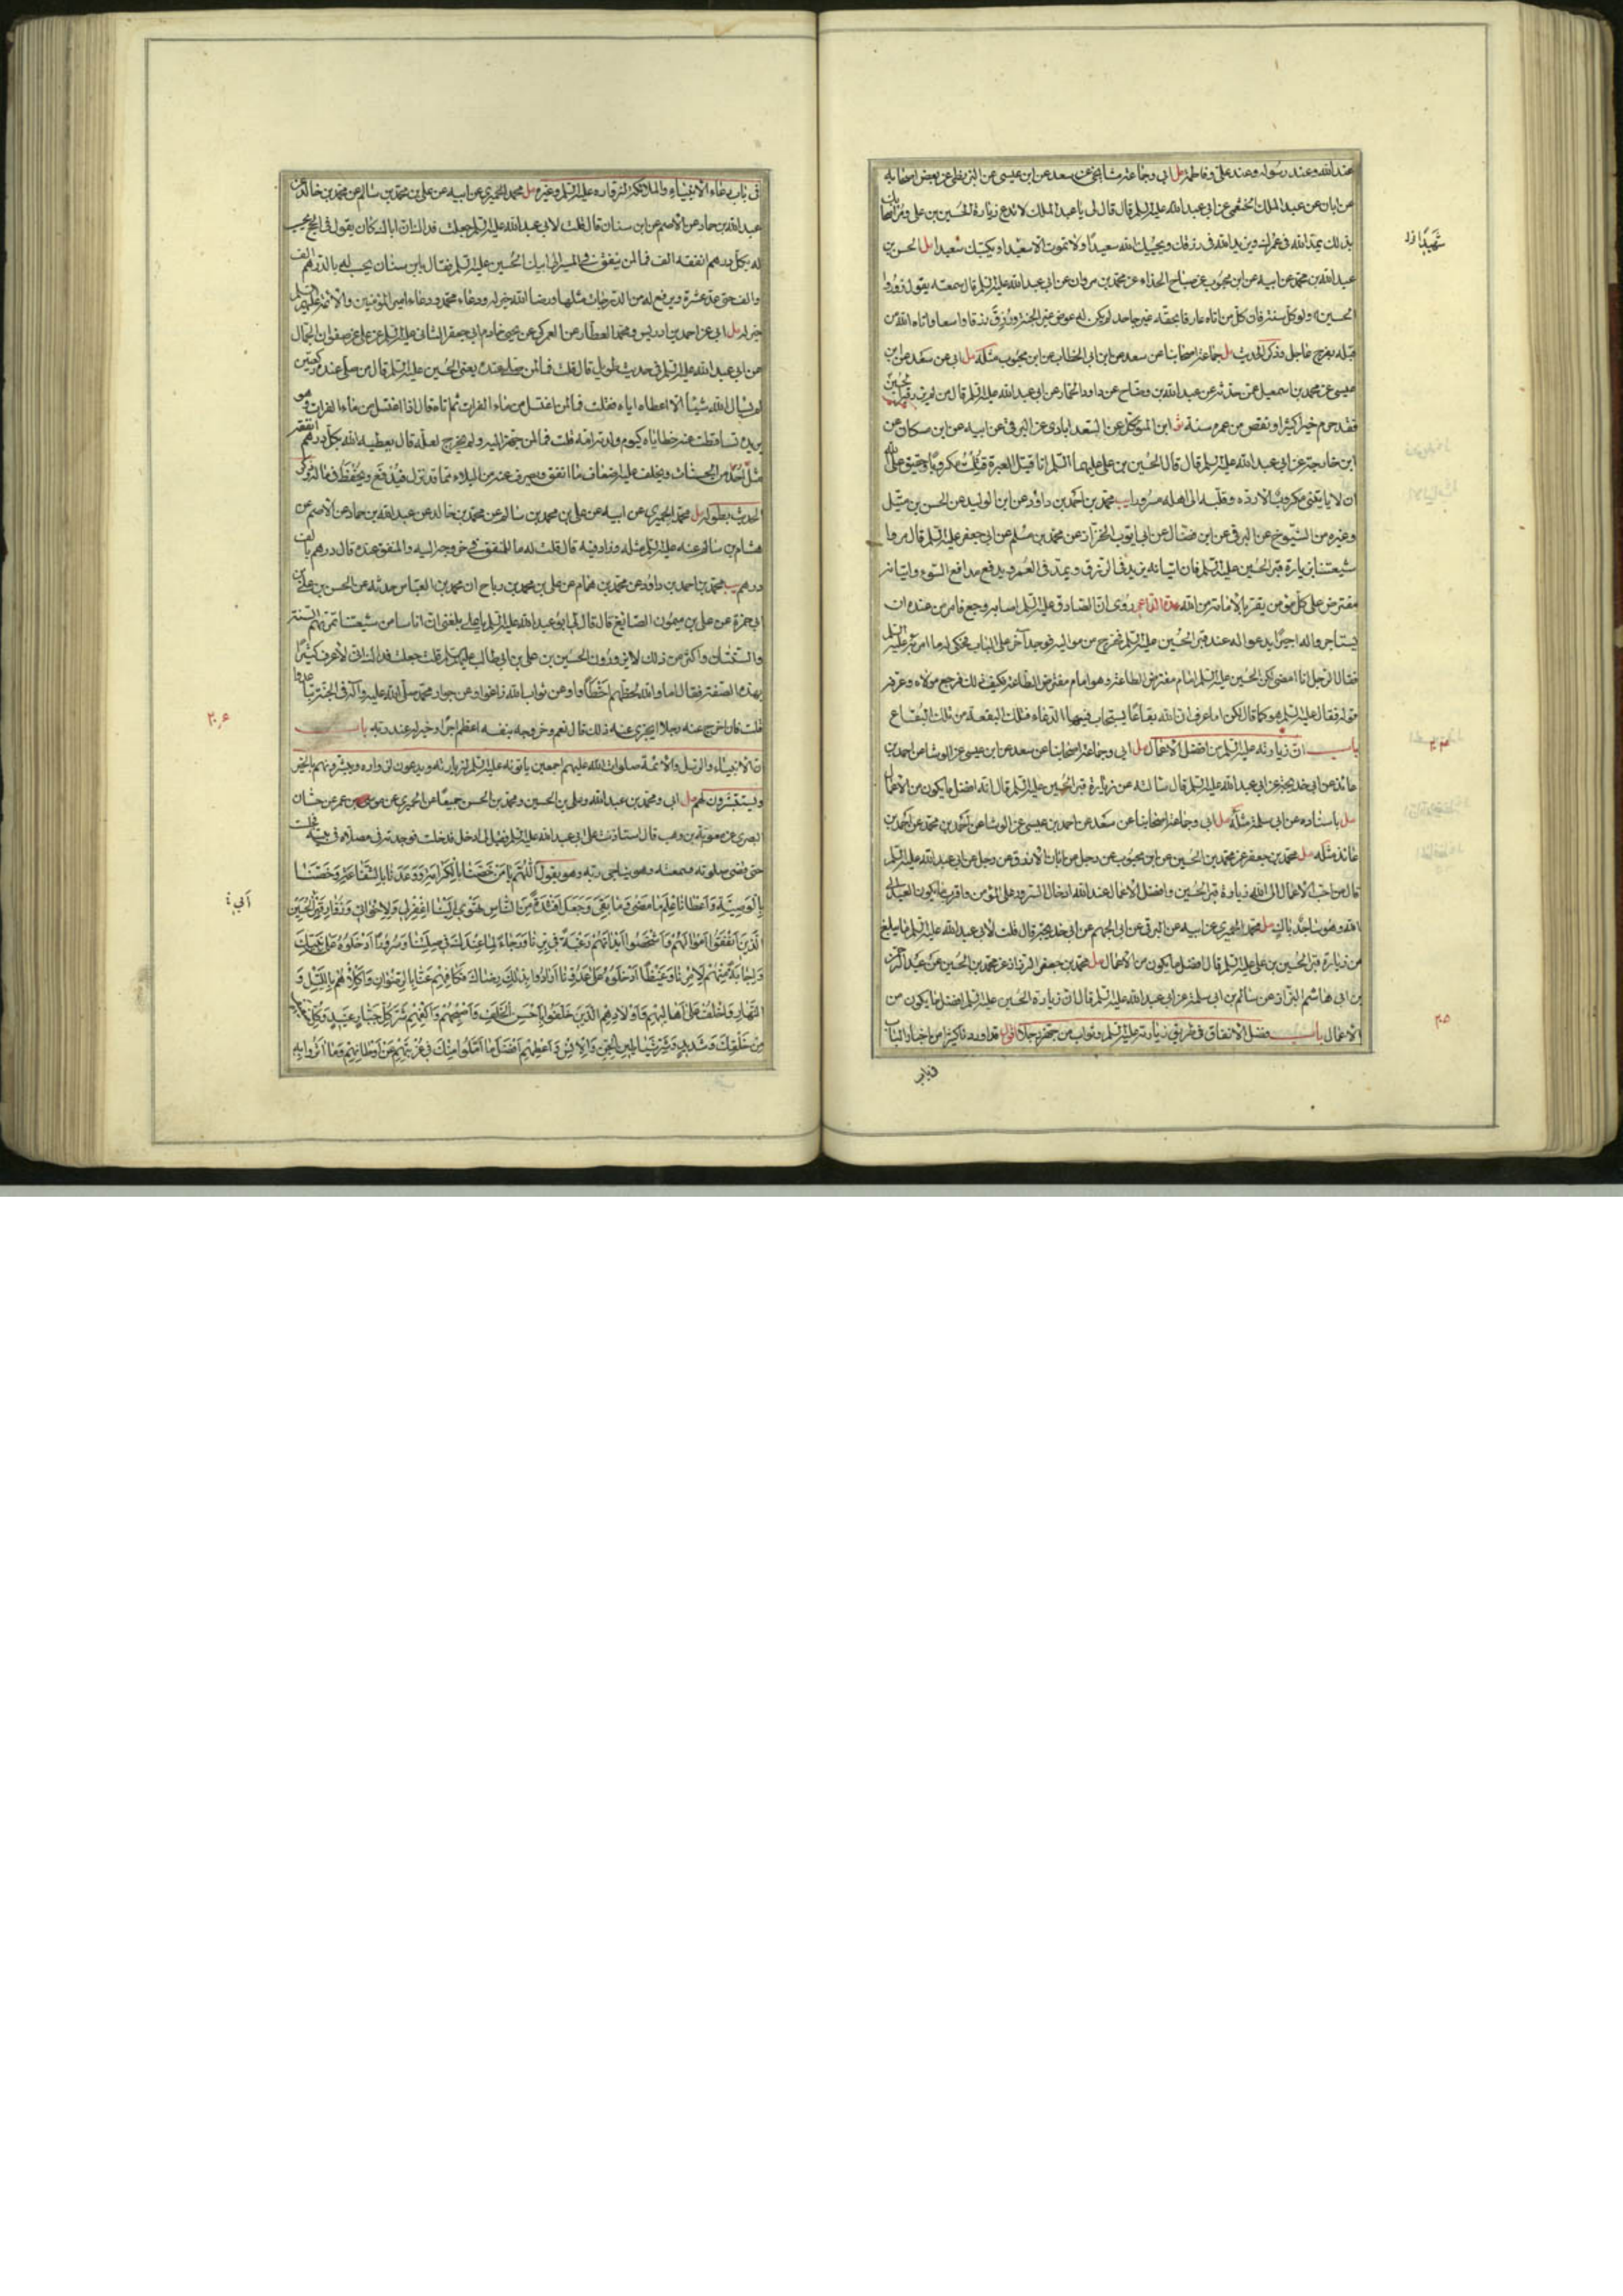 عند الله وعند رسوله وعند علي وفاطمة مل ابي وجماعة مشايخي عن سعد عن ابن عيسى عن البزنطي عن بعض اصحابه
عن ابان عن عبد الملك الخثعمي عن ابي عبد الله عليه السلم قال قال لي يا عبد الملك لا تدع زيارة الحسين بن علي ومر اصحابك
بذلك يمد الله في عمرك ويزيد الله في رزقك ويحييك الله سعيدا ولا تموت الا سعيدا ويكتبك سعيدا مل الحسن بن
عبد الله بن محمد عن ابيه عن ابن محبوب عن صباح الحذاء عن محمد بن مروان عن ابي عبد الله عليه السلم قال سمعته يقول زوروا
الحسين ولو كل سنة فان كل من اتاه عارفا بحقه غير جاحد لم يكن له عوض غير الجنة ورزق رزقا واسعا واتاه الله من
قبله بفرج عاجل وذكر الحديث مل جماعة اصحابنا عن سعد عن ابن ابي الخطاب عن ابن محبوب مثله مل ابي عن سعد عن ابن
عيسى عن محمد بن اسمعيل عمن حدثه عن عبد الله بن وضاح عن داود الحمار عن ابي عبد الله عليه السلم قال من لم يزر قبر الحسين
فقد حرم خيرا كثيرا ونقص من عمره سنة ابن المتوكل عن السعدابادي عن البرقي عن ابيه عن ابن مسكان عن
ابن خارجة عن ابي عبد الله عليه السلم قال قال الحسين بن علي عليهما السلم انا قتيل العبرة قتلت مكروبا وحقيق على الله
ان لا ياتيني مكروب الا رده وقلبه الى اهله مسرورا يب محمد بن احمد بن داود عن ابن الوليد عن الحسن بن متيل
وغيره من الشيوخ عن البرقي عن ابن فضال عن ابي ايوب الخزاز عن محمد بن مسلم عن ابي جعفر عليه السلم قال مروا
شيعتنا بزيارة قبر الحسين عليه السلم فان اتيانه يزيد في الرزق ويمد في العمر ويدفع مدافع السوء واتيانه
مفترض على كل مؤمن يقر بالامامة من الله عدة الداعي روى ان الصادق عليه السلم اصابه وجع فامر من عنده ان
يستاجروا له اجيرا يدعو له عند قبر الحسين عليه السلم فخرج من مواليه فوجد آخر على الباب فحكى له ما امر به عليه السلم
فقال الرجل انا امضي لكن الحسين عليه السلم امام مفترض الطاعة وهو امام مفترض الطاعة فكيف ذلك فرجع مولاه وعرفه
قوله فقال عليه السلم هو كما قال لكن اما عرف ان لله بقاعا يستجاب فيها الدعاء فتلك البقعة من تلك البقاع
باب ان زيارته عليه السلم من افضل الاعمال مل ابي وجماعة اصحابنا عن سعد عن ابن عيسى عن الوشا عن احمد بن
عائذ عن ابي خديجة عن ابي عبد الله عليه السلم قال سالته عن زيارة قبر الحسين عليه السلم قال انه افضل ما يكون من الاعمال
مل باسناده عن ابي سلمة مثله مل ابي وجماعة اصحابنا عن سعد عن احمد بن عيسى عن الوشا عن احمد بن محمد عن احمد بن
عائذ مثله مل محمد بن جعفر عن محمد بن الحسين عن ابن محبوب عن رجل عن ابان الازرق عن رجل عن ابي عبد الله عليه السلم
قال من احب الاعمال الى الله زيارة قبر الحسين وافضل الاعمال عند الله ادخال السرور على المؤمن واقرب ما يكون العبد الى
الله وهو ساجد باك مل محمد الحميري عن ابيه عن البرقي عن ابي الجهم عن ابي خديجة قال قلت لابي عبد الله عليه السلم ما يبلغ
من زيارة قبر الحسين بن علي عليه السلم قال افضل ما يكون من الاعمال مل محمد بن جعفر الرزاز عن محمد بن الحسين عن عبد الرحمن
بن ابي هاشم البزاز عن سالم بن ابي سلمة عن ابي عبد الله عليه السلم قال ان زيارة الحسين عليه السلم افضل ما يكون من
الاعمال باب فضل الانفاق في طريق زيارته عليه السلم وثواب من جهز رجلا اقول قد اوردنا كثيرا من اخبار الباب
في باب
شهيدا ود
في باب دعاء الانبياء والملائكة لزواره عليه السلم وغيره مل محمد الحميري عن ابيه عن علي بن محمد بن سالم عن محمد بن خالد عن
عبد الله بن حماد عن الاصم عن ابن سنان قال قلت لابي عبد الله عليه السلم جعلت فداك ان اباك كان يقول في الحج يحسب
له بكل درهم انفقه الف فما لمن ينفق في المسير الى ابيك الحسين عليه السلم فقال يابن سنان يحسب له بالدرهم الف
والف حتى عد عشرة ويرفع له من الدرجات مثلها ورضا الله خير له ودعاء محمد ودعاء امير المؤمنين والائمة عليهم السلم
خير له مل ابي عن احمد بن ادريس ومحمد العطار عن العمركي عن يحيى خادم ابي جعفر الثاني عليه السلم عن علي عن صفوان الجمال
عن ابي عبد الله عليه السلم في حديث طويل قال قلت فما لمن صلى عنده يعني الحسين عليه السلم قال من صلى عنده ركعتين
لم يسال الله شيئا الا اعطاه اياه فقلت فما لمن اغتسل من ماء الفرات ثم اتاه قال اذا اغتسل من ماء الفرات وهو
يريده تساقطت عنه خطاياه كيوم ولدته امه قلت فما لمن جهز اليه ولم يخرج لعلة قال يعطيه الله بكل درهم انفقه
مثل احد من الحسنات ويخلف عليه اضعاف ما انفق ويصرف عنه من البلاء مما قد نزل فيدفع ويحفظ في ماله وذكر
الحديث بطوله مل محمد الحميري عن ابيه عن علي بن محمد بن سالم عن محمد بن خالد عن عبد الله بن حماد عن الاصم عن
هشام بن سالم عنه عليه السلم مثله وزاد فيه قال قلت له ما للمنفق في خروجه اليه والمنفق عنده قال درهم بالف
درهم يب محمد بن احمد بن داود عن محمد بن همام عن علي بن محمد بن رباح ان محمد بن العباس حدثه عن الحسن بن علي بن
ابي حمزة عن علي بن ميمون الصائغ قال قال لي ابو عبد الله عليه السلم يا علي بلغني ان اناسا من شيعتنا تمر بهم السنة
والسنتان واكثر من ذلك لا يزورون الحسين بن علي بن ابي طالب عليهم السلم قلت جعلت فداك اني لاعرف كثيرا
بهذه الصفة فقال اما والله لحظهم اخطأوا وعن ثواب الله زاغوا وعن جوار محمد صلى الله عليه وآله في الجنة تباعدوا
قلت فان اخرج عنه رجلا ايجزي عنه ذلك قال نعم وخروجه بنفسه اعظم اجرا وخير له عند ربه باب
ان الانبياء والرسل والائمة صلوات الله عليهم اجمعين ياتونه عليه السلم لزيارته ويدعون لزواره ويبشرونهم بالخير
ويستبشرون لهم مل ابي ومحمد بن عبد الله وعلي بن الحسين ومحمد بن الحسن جميعا عن الحميري عن موسى بن عمر عن حسان
البصري عن معوية بن وهب قال استاذنت على ابي عبد الله عليه السلم فقيل لي ادخل فدخلت فوجدته في مصلاه في بيته فجلست
حتى قضى صلوته فسمعته وهو يناجي ربه وهو يقول اللهم يا من خصنا بالكرامة ووعدنا بالشفاعة وخصنا
بالوصية واعطانا علم ما مضى وما بقي وجعل افئدة من الناس تهوي الينا اغفر لي ولاخواني وزوار قبر ابي الحسين
الذين انفقوا اموالهم واشخصوا ابدانهم رغبة في برنا ورجاء لما عندك في صلتنا وسرورا ادخلوه على نبيك
واجابة منهم لامرنا وغيظا ادخلوه على عدونا ارادوا بذلك رضاك فكافهم عنا بالرضوان واكلأهم بالليل و
النهار واخلف على اهاليهم واولادهم الذين خلفوا باحسن الخلف واصحبهم واكفهم شر كل جبار عنيد وكل ضعيف
من خلقك وشديد وشر شياطين الجن والانس واعطهم افضل ما املوا منك في غربتهم عن اوطانهم وما آثرونا به
ابي